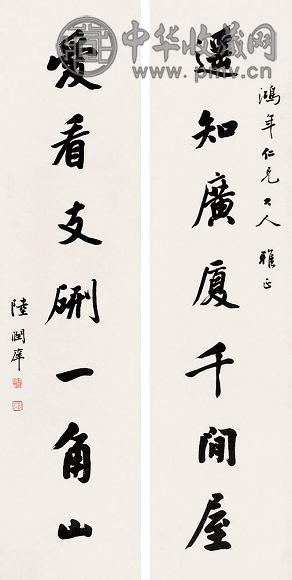 中华收藏网
www.pmv.cn
鴻年仁兄大人 雅正
遙知廣厦千間屋
愛看支硎一角山
陸潤庠